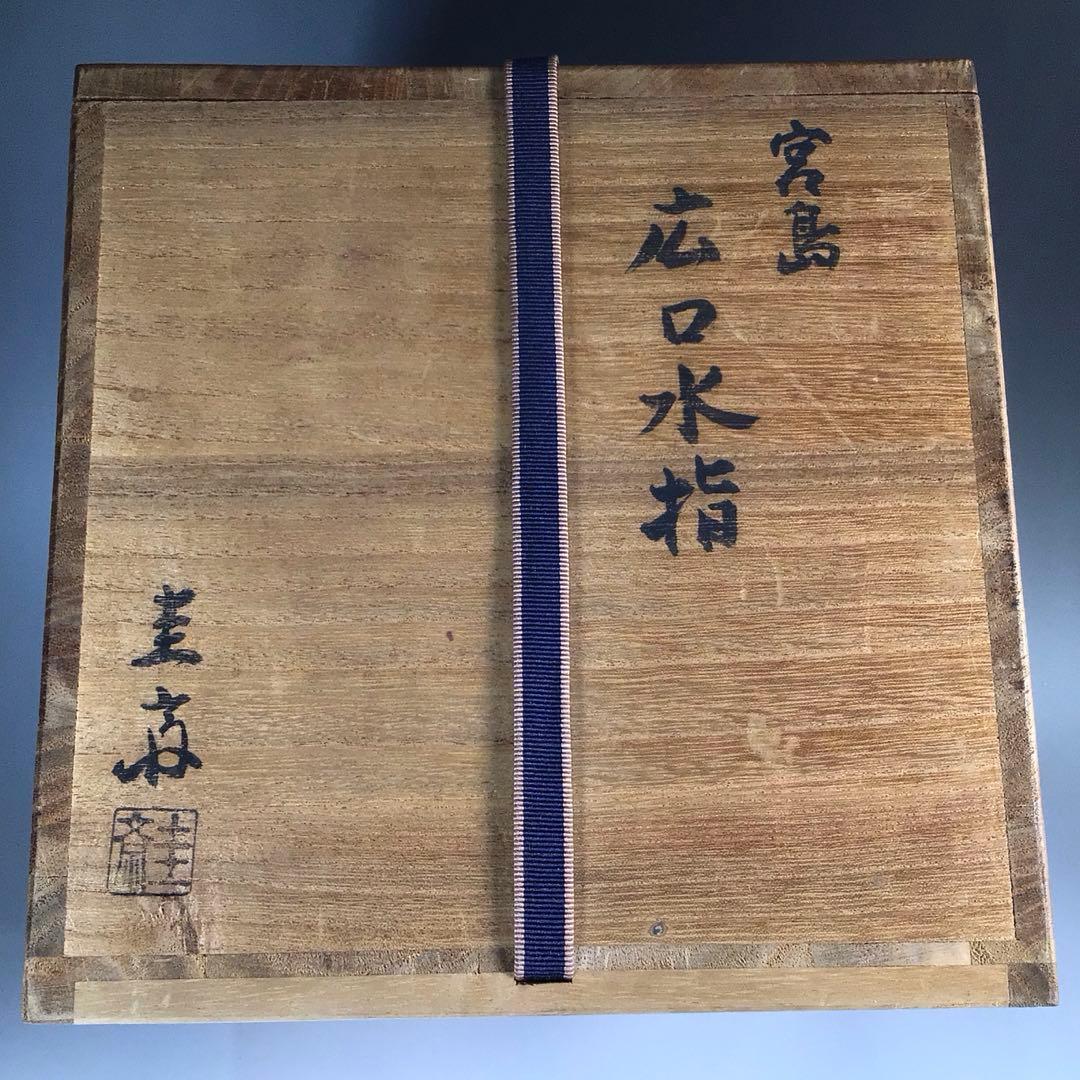 宮島
広口水指
圭斎
圭斎